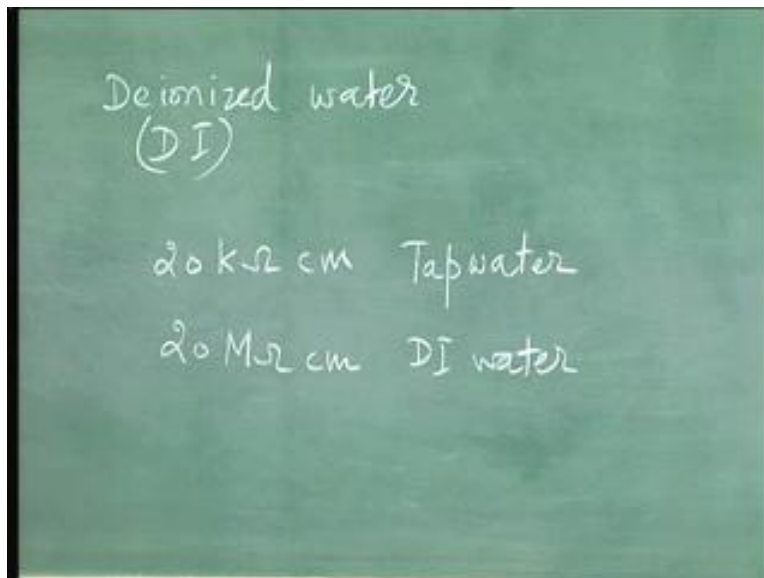 Deionized water
(DI)
20 kΩ cm Tapwater
20 MΩ cm DI water